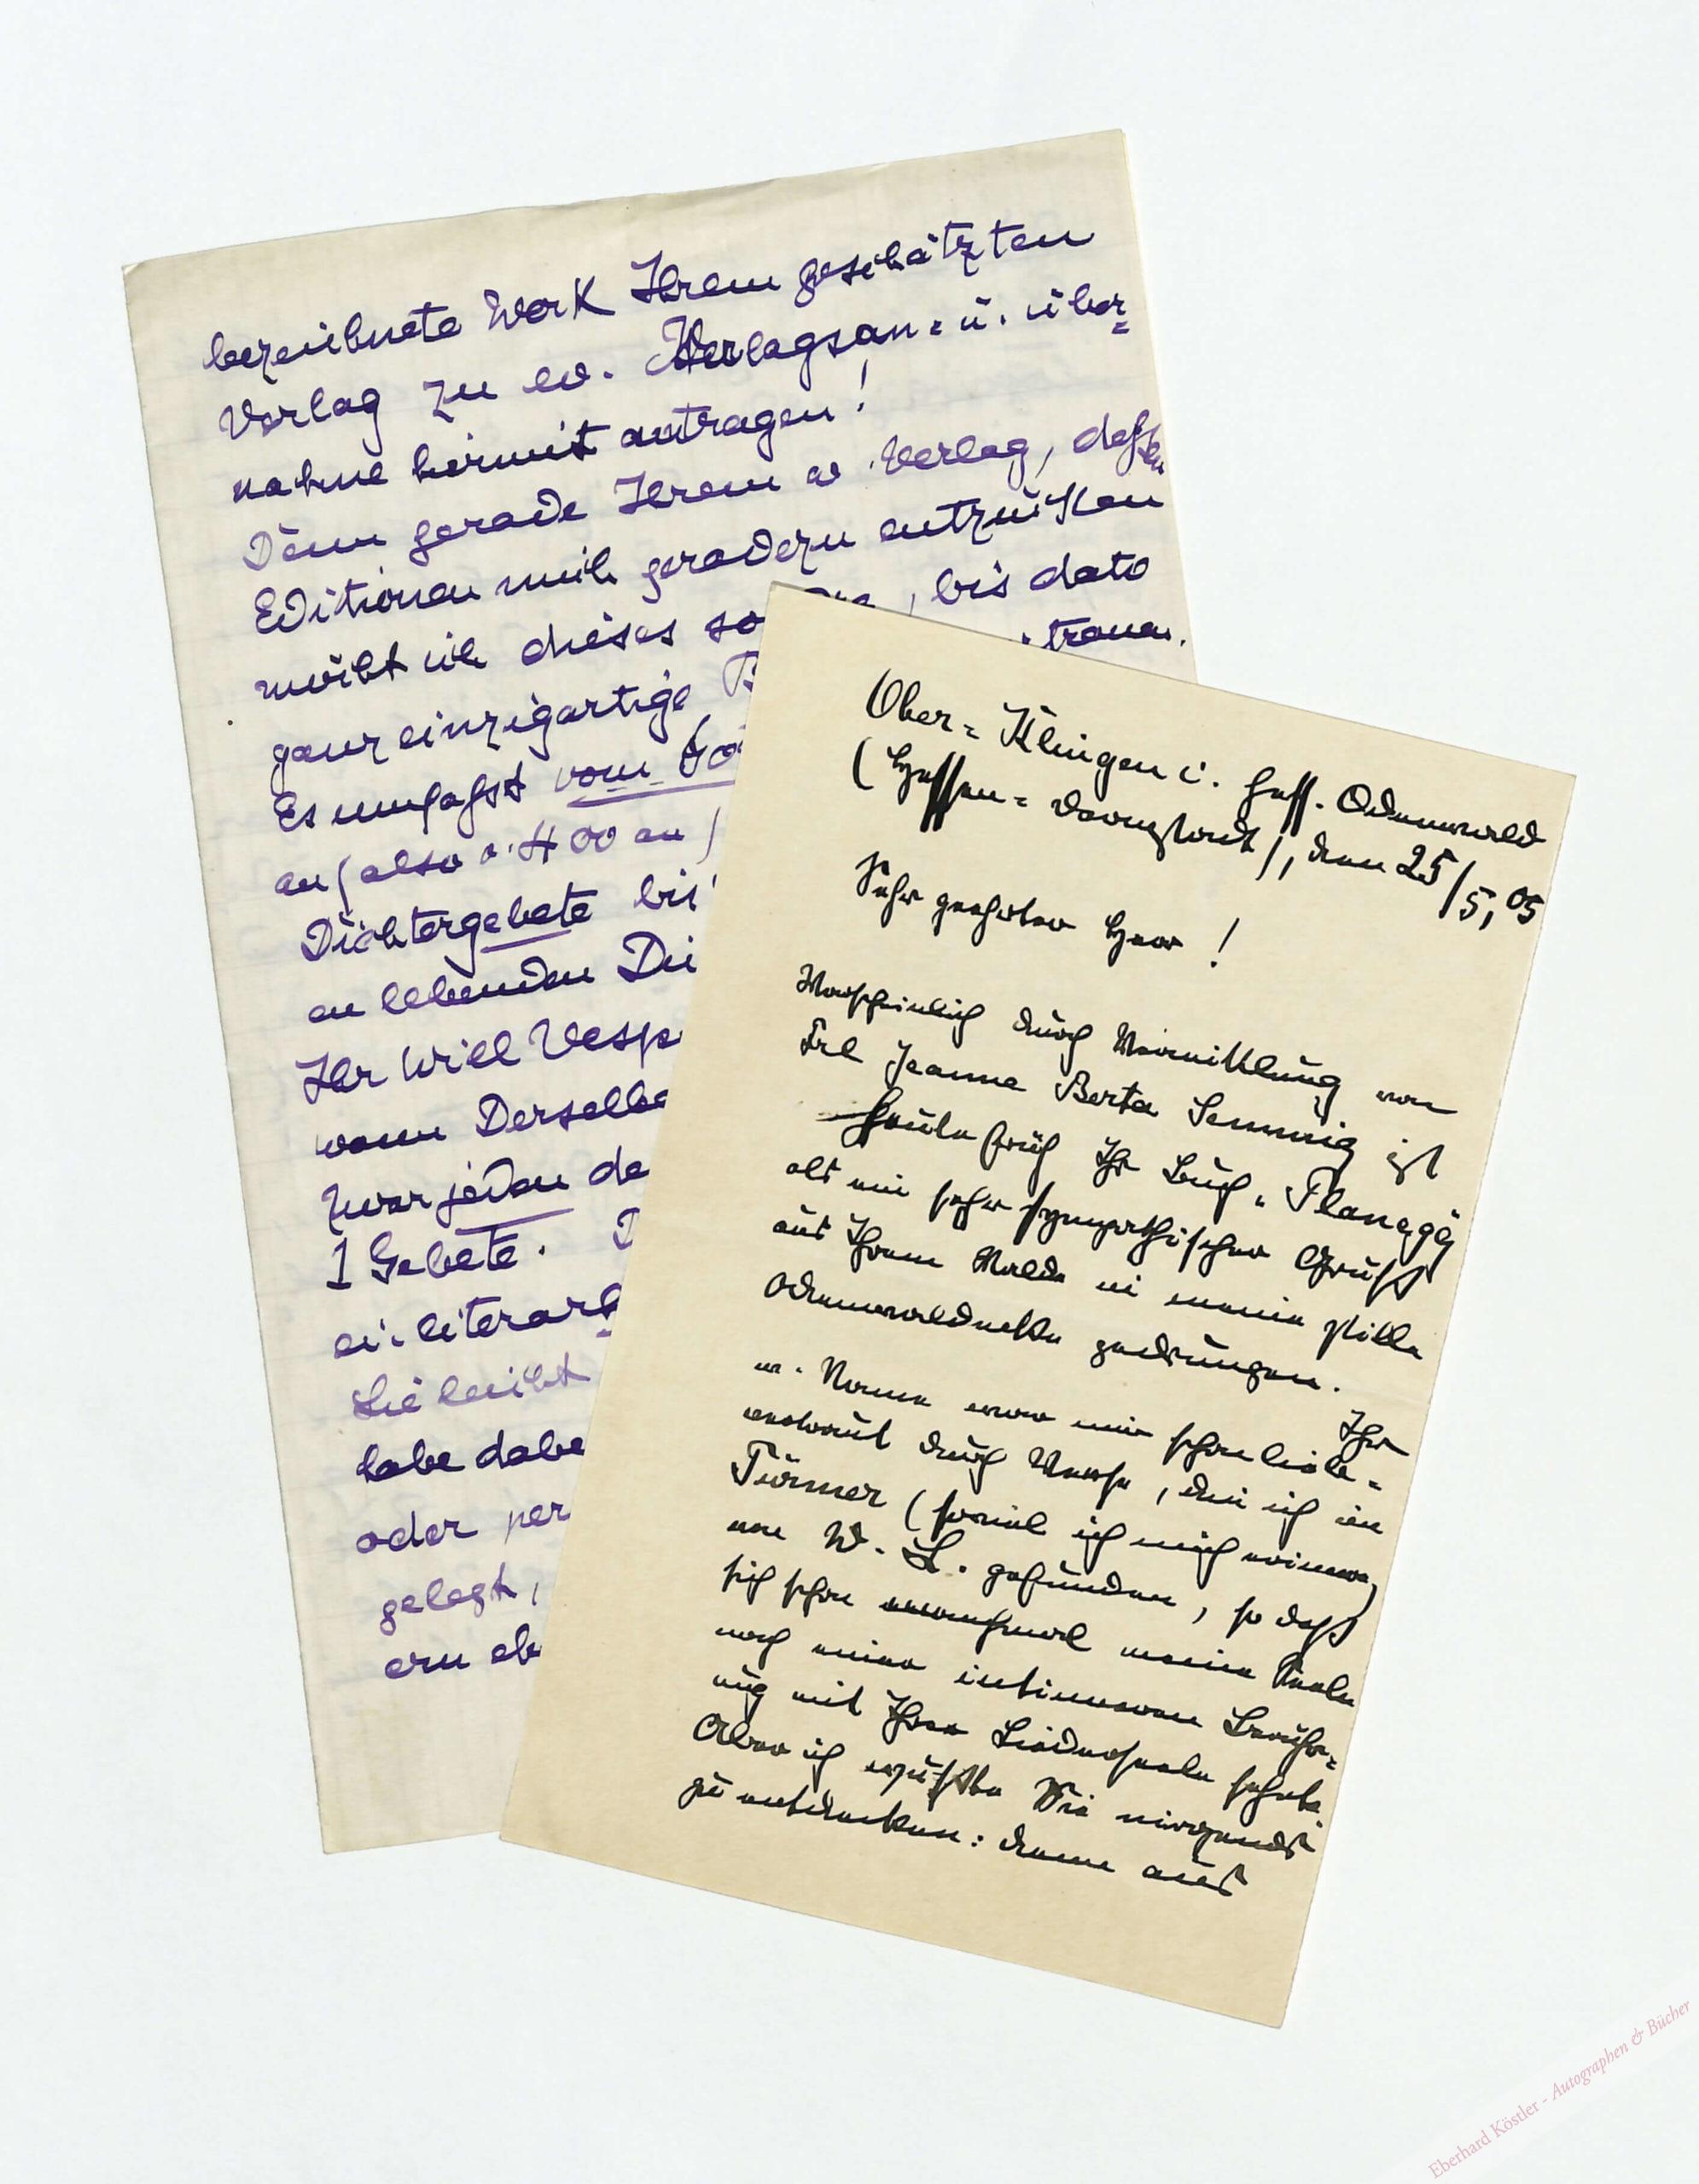 bezeichnete Werk Ihrem geschätzten
Verlag zu ev. Verlagsan= u. über=
nahme hiermit antragen!
Denn gerade Ihrem w Verlag, dessen
Editionen mich geradezu entzücken
möcht ich dieses so , bis dato
ganz einzigartige trauen.
Es umfasst vom
an (also a. 400 an
Dichtergebete bis
an lebenden Di
Ihr Will Vesp
wenn Derselbe
zwar jeden de
1 Gebete.
ei literar
Sie leicht
habe dabe
oder per
gelegt,
ern eb
Ober=Klingen i. Hess. Odenwald
(Hessen=Darmstadt), den 25/5, 05
Sehr geehrter Herr!
Warscheinlich durch Vermittlung von
Frl Jeanne Berta Semmig ist
heute früh Ihr Buch „Planegg
als ein sehr sympathischer Gruß
aus Ihrem Walde in meine stille
Odenwaldecke gedrungen. Ihr
w. Name war mir schon liebe=
vertraut durch Verse, die ich im
Türmer (soviel ich mich erinnere)
von W. L. gefunden, so daß
sich schon manchmal meine Seele
nach einer intimeren Berühr=
ung mit Ihrer Liederseele sehnte.
Aber ich wußte Sie nirgends
zu entdecken: denn aus
Eberhard Köstler - Autographen & Bücher